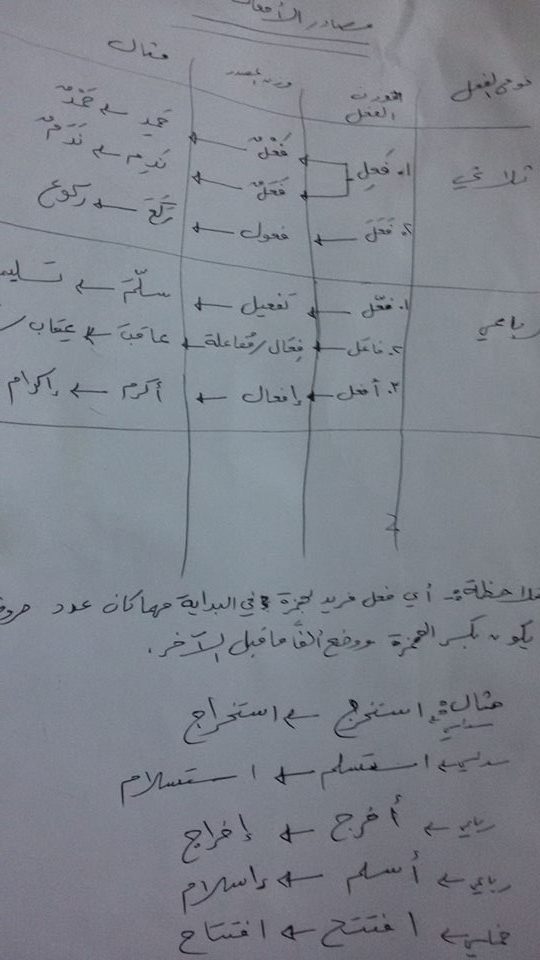 مصادر الأفعال
نوعي الفعل وزن الفعل وزن المصدر مثال
ثلاثي ١. فَعِلَ ← فَعْلٌ ← حَمِد ← حَمْدٌ
← فَعَلٌ ← نَدِم ← نَدَمٌ
٢. فَعَلَ ← فعول ← رَكَعَ ← ركوع
رباعي ١. فعّل ← تفعيل ← سلّمَ ← تسليم
٢. فاعل ← فِعَال/مُفاعلة ← عاقبَ ← عِقاب/
٣. أفعل ← إفعال ← أكرم ← إكرام
ملاحظة:- أي فعل مزيد بهمزة في البداية مهما كان عدد حروفه
يكون بكسر الهمزة ووضع ألفاً ما قبل الآخر.
مثال: سداسي استخرج ← استخراج
سداسي ← استسلم ← استسلام
رباعي ← أخرج ← إخراج
رباعي ← أسلم ← إسلام
خماسي ← افتتح ← افتتاح